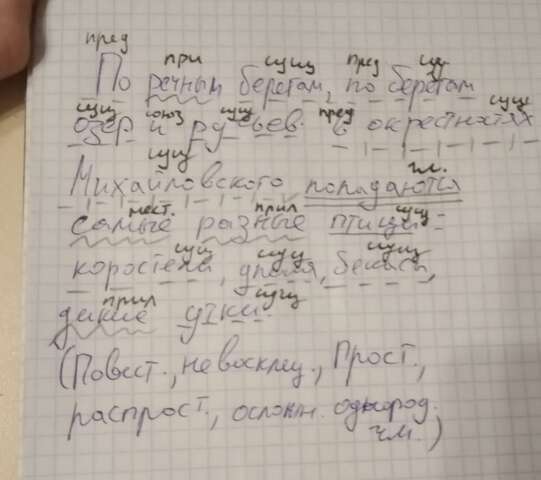 пред при сущ пред су
По речным берегам, по берегам
сущ союз сущ пред сущ
озёр и ручьев в окрестностях
сущ гл.
Михайловского попадаются
мест. прил сущ
самые разные птицы:
сущ сущ сущ
коростели, дупеля, бекасы,
прил сущ
дикие утки.
(Повест., невосклиц., Прост.,
распрост., ослажн. однород.
чл.)